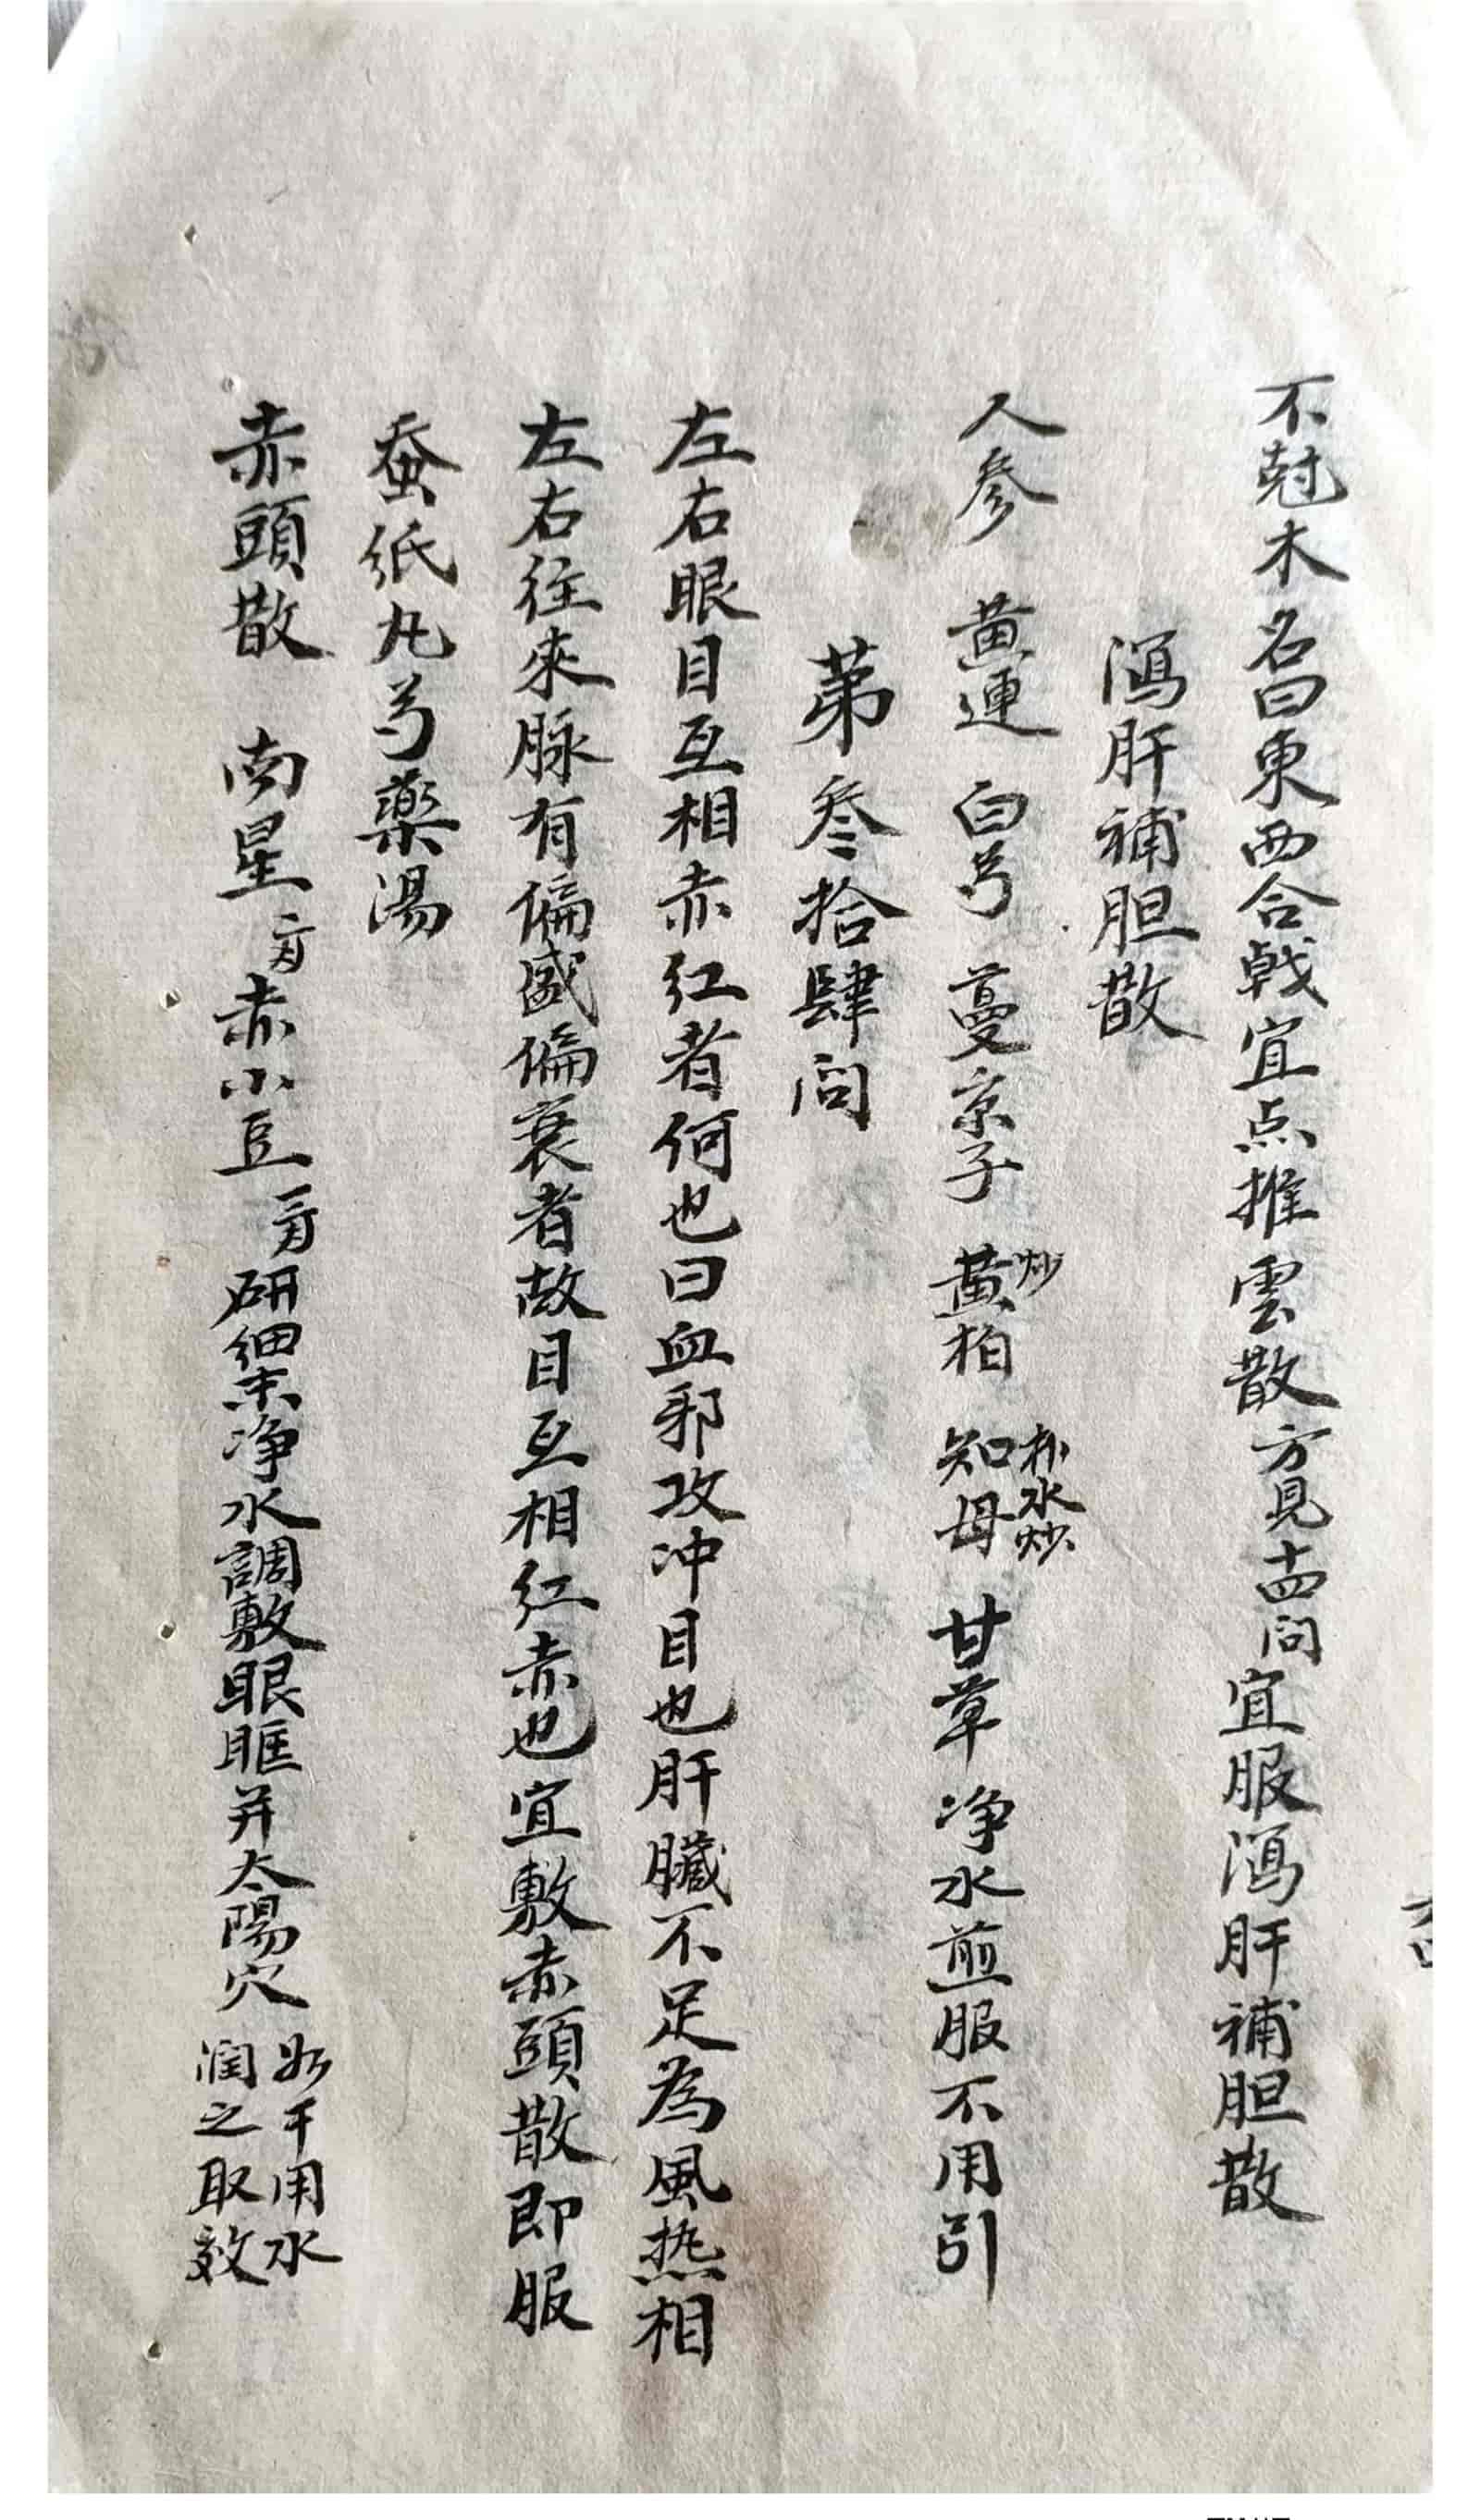 不尅木名曰東西合戰宜点推雲散方見十四問宜服瀉肝補胆散
瀉肝補胆散
人參 黄連 白芍 蔓京子 黄柏炒 知母朴水炒 甘草净水煎服不用引
苐叄拾肆问
左右眼目互相赤红者何也曰血邪攻冲目也肝臟不足為風热相
左右往來脉有偏盛偏衰者故目互相红赤也宜敷赤頭散即服
蚕纸丸芍藥湯
赤頭散 南星 赤小豆 研細末净水調敷眼眶并太陽穴 如干用水潤之取效